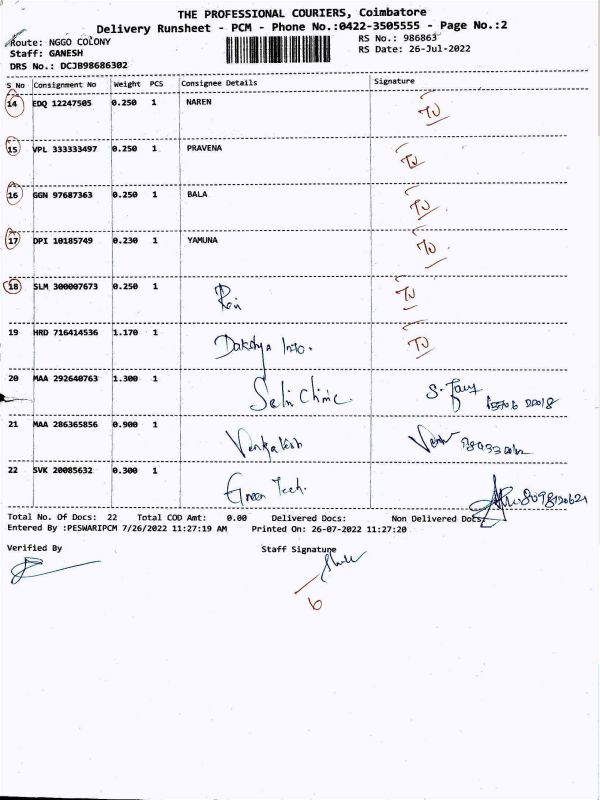 THE PROFESSIONAL COURIERS, Coimbatore
Delivery Runsheet - PCM - Phone No.:0422-3505555 - Page No.:2
Route: NGGO COLONY RS No.: 986863
Staff: GANESH RS Date: 26-Jul-2022
DRS No.: DCJB98686302
S No Consignment No Weight PCS Consignee Details Signature
14 EDQ 12247505 0.250 1 NAREN TU
15 VPL 333333497 0.250 1 PRAVENA TU
16 GGN 97687363 0.250 1 BALA TU
17 DPI 10185749 0.230 1 YAMUNA TU
18 SLM 300007673 0.250 1 TU
19 HRD 716414536 1.170 1 Dakshya Info. TU
20 MAA 292640763 1.300 1 Selin Clinic
21 MAA 286365856 0.900 1 Venkatesh
22 SVK 20085632 0.300 1 Green Tech.
Total No. Of Docs: 22 Total COD Amt: 0.00 Delivered Docs: Non Delivered Docs:
Entered By :PESWARIPCM 7/26/2022 11:27:19 AM Printed On: 26-07-2022 11:27:20
Verified By Staff Signature
6